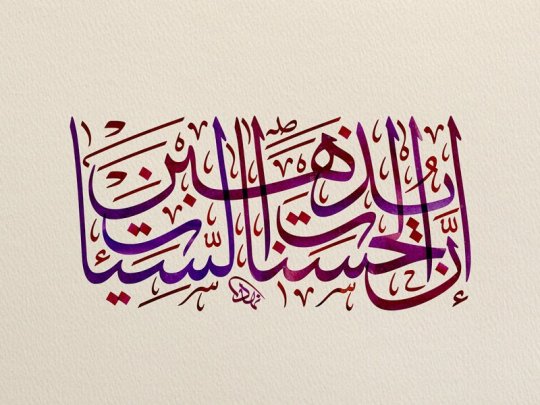 إِنَّ الحسنات يُذهبن السَّيِّئات